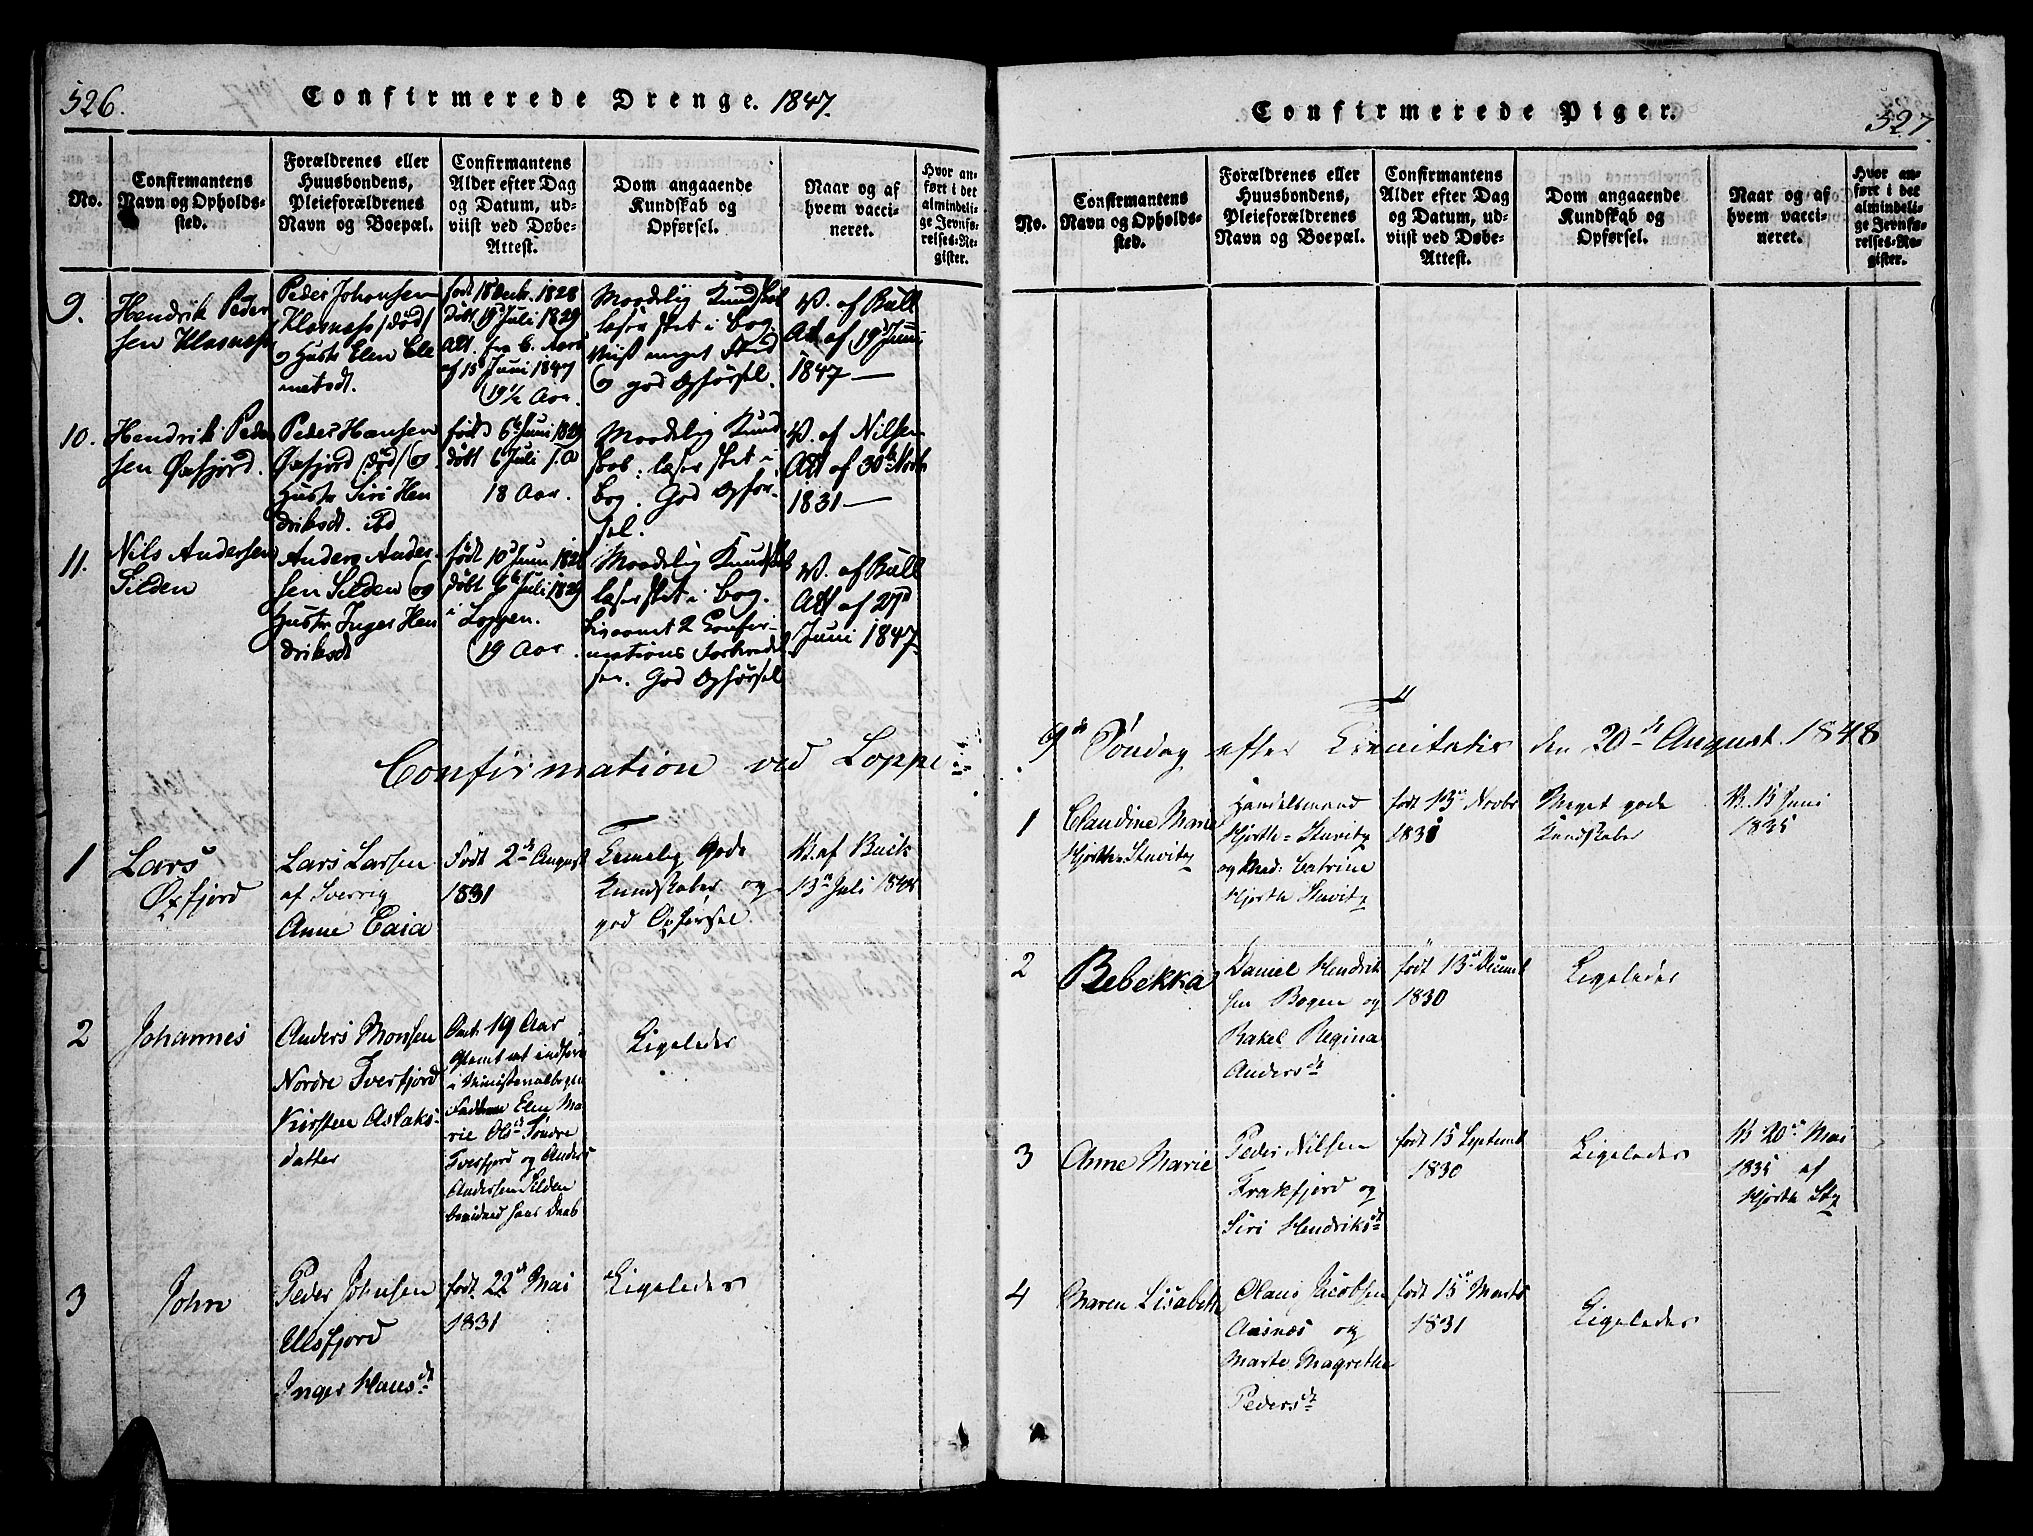 526.
Confirmerede Drenge. 1847.
No.
Confirmantens
Navn og Opholds-
sted.
Forældrenes eller
Huusbondens,
Pleieforældrenes
Navn og Boepæl.
Confirmantens
Alder efter Dag
og Datum, ud-
viist ved Døbe-
Attest.
Dom angaaende
Kundskab og
Opførsel.
Naar og af
hvem vacci-
neret.
Hvor an-
ført i det
almindeli-
ge Jevnfø-
relses-Re-
gister.
9.
Hendrik Peder
sen Klasness
Peder Johansen
Klasness /død/
og Hustr Elen Cle
metsdt.
født 18 Decb. 1828
døbt 19d Juli 1829
Att. fra
af 15 Juni 1847
19 1/2 Aar.
Maadelig Kundskab
læser slet i Bog.
Viist meget Flid
og god Opførsel.
V. af Bull
Att af 19d Juni
1847 —
10.
Hendrik Peder
sen Øxfjord.
Peder Hansen
Øxfjord /død/ og
Hustr Siri Hen
driksdt. ibd
født 6te Juni 1829
døbt 6 Juli s. A
18 Aar.
Maadelig Kund
skab. læser slet i
bog. God Opfør-
sel.
V. af Nilsen
Att af 30te Novb
1831 —
11.
Nils Andersen
Silden
Anders Ander-
sen Silden og
Hustr Inger Hen
driksdt
født 10d Juni 1828
døbt 6te Juli 1829
i Loppen.
19 Aar.
Maadelig Kundskab
læser slet i bog.
2 Confir-
mations Forberedel
ser. God Opførsel
V. af Bull
Att af 27d
Juni 1847
Confirmation ved Loppe
1
Lars
Øxfjord
Lars Larsen
af Sverrig
Anne Caia
Født 2de August
1831
Temelig Gode
Kundskaber og
god Opførsel
V. af Buck
13de Juli 1848
2
Johannes
Anders Monsen
Nordre Tverfjord
Kirsten Aslaks-
datter
Ant. 19 Aar
Glemt at indføres
i Ministerialbogen
Fadderne Elen Ma
rie Olsdt Søndre
Tverfjord og Anders
Andersen Silden
bevidned hans Daab
Ligeledes
3
John
Peder Johnsen
Ulsfjord
Inger Hansdt
født 22de Mai
1831
Ligeledes
Confirmerede Piger.
527
No.
Confirmantens
Navn og Opholds-
sted.
Forældrenes eller
Huusbondens,
Pleieforældrenes
Navn og Boepæl.
Confirmantens
Alder efter Dag
og Datum, ud-
viist ved Døbe-
Attest.
Dom angaaende
Kundskab og
Opførsel.
Naar og af
hvem vacci-
neret.
Hvor an-
ført i det
almindeli-
ge Jevnfø-
relses-Re-
gister.
9de Søndag efter Trinitatis den 20de August. 1848
1
Claudine Marie
Hjorth-Stuvitz
Handelsmand
Hjorth-Stuvitz
og Mad: Catrine
Hjorth Stuvitz
født 13de Novbr
1831
Meget gode
Kundskaber
V. 15 Juni
1835
2
Rebekka
Daniel Hendrik
sen Bogen og
Rakel Regina
Andersdt
født 13de Decemb
1830
Ligeledes
3
Anne Marie
Peder Nilsen
Frakfjord og
Siri Hendriksdt
født 15 Septemb
1830
Ligeledes
V 20de Mai
1835 af
Hjorth Stz
4
Maren Lisabeth
Olaus Jacobsen
Aasnæs og
Marte Magrethe
Pedersdt
født 15de Marts
1831
Ligeledes